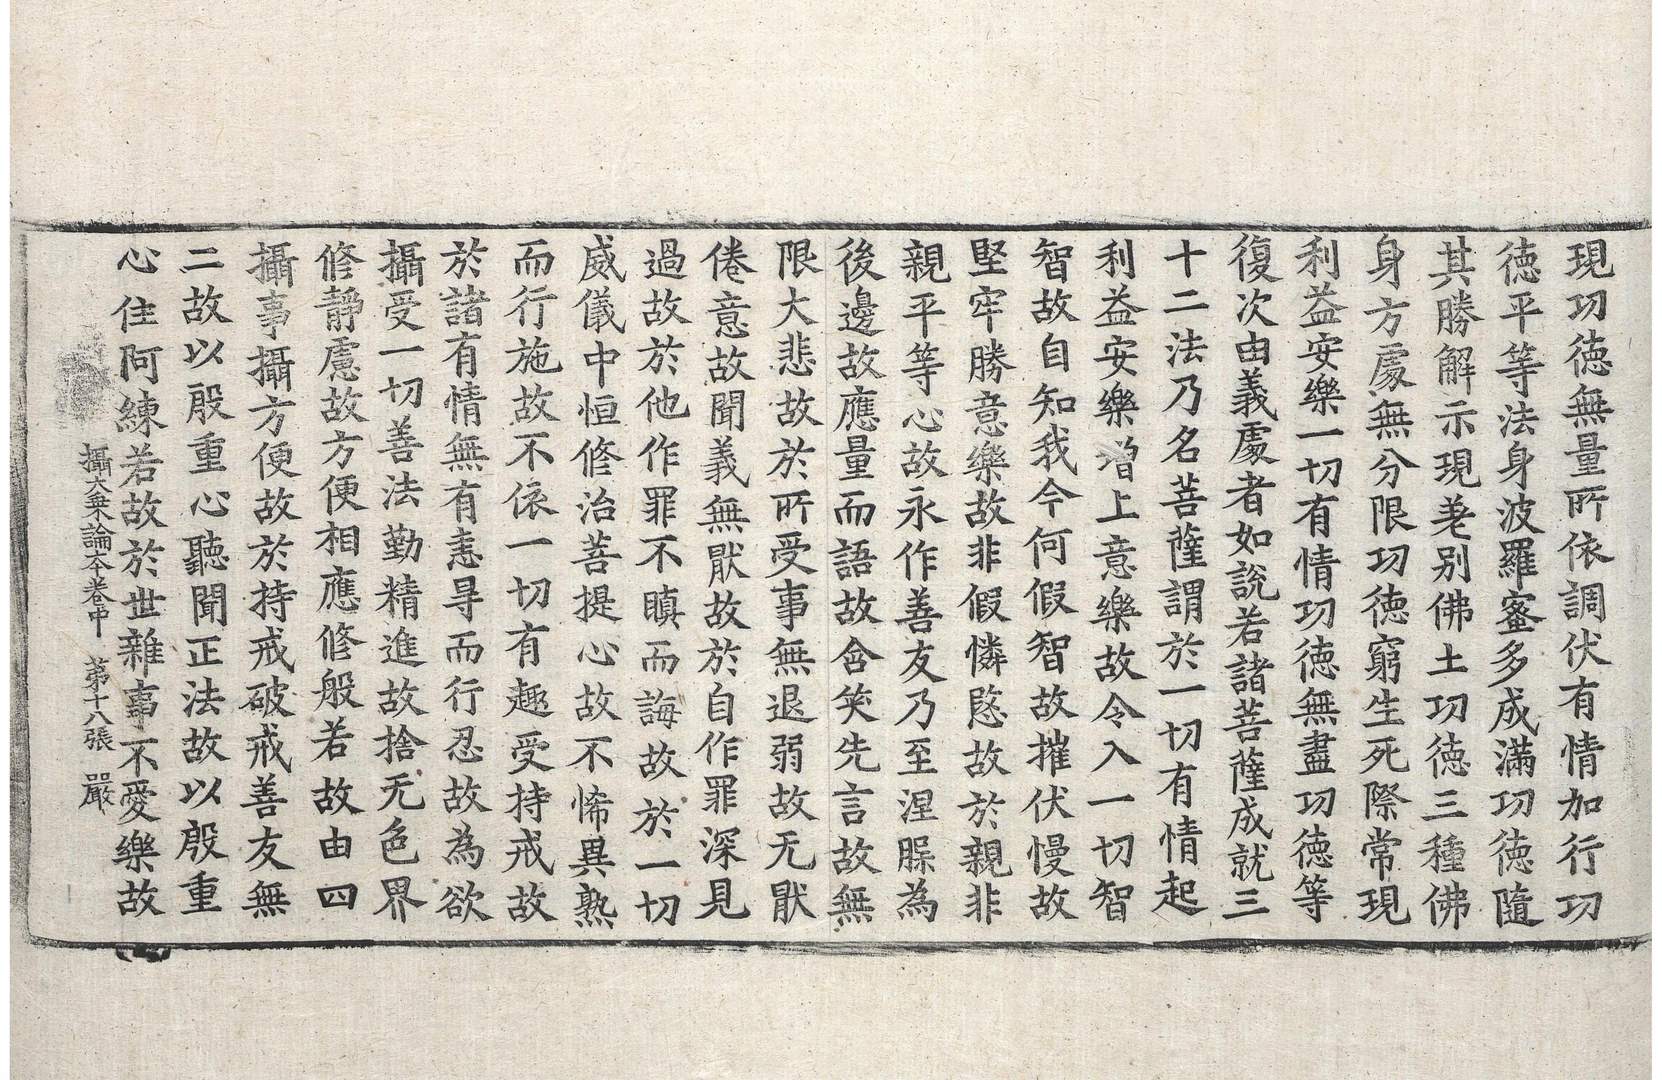 現功德無量所依調伏有情加行功
德平等法身波羅蜜多成滿功德隨
其勝解示現差别佛土功德三種佛
身方處無分限功德窮生死際常現
利益安樂一切有情功德無盡功德等
復次由義處者如說若諸菩薩成就三
十二法乃名菩薩謂於一切有情起
利益安樂增上意樂故令入一切智
智故自知我今何假智故摧伏慢故
堅牢勝意樂故非假憐愍故於親非
親平等心故永作善友乃至涅槃為
後邊故應量而語故含笑先言故無
限大悲故於所受事無退弱故无厭
倦意故聞義無厭故於自作罪深見
過故於他作罪不瞋而誨故於一切
威儀中恒修治菩提心故不悕異熟
而行施故不依一切有趣受持戒故
於諸有情無有恚导而行忍故為欲
攝受一切善法勤精進故捨无色界
修靜慮故方便相應修般若故由四
攝事攝方便故於持戒破戒善友無
二故以殷重心聽聞正法故以殷重
心住阿練若故於世雜事不愛樂故
攝大乗論本卷中 第十八張 嚴